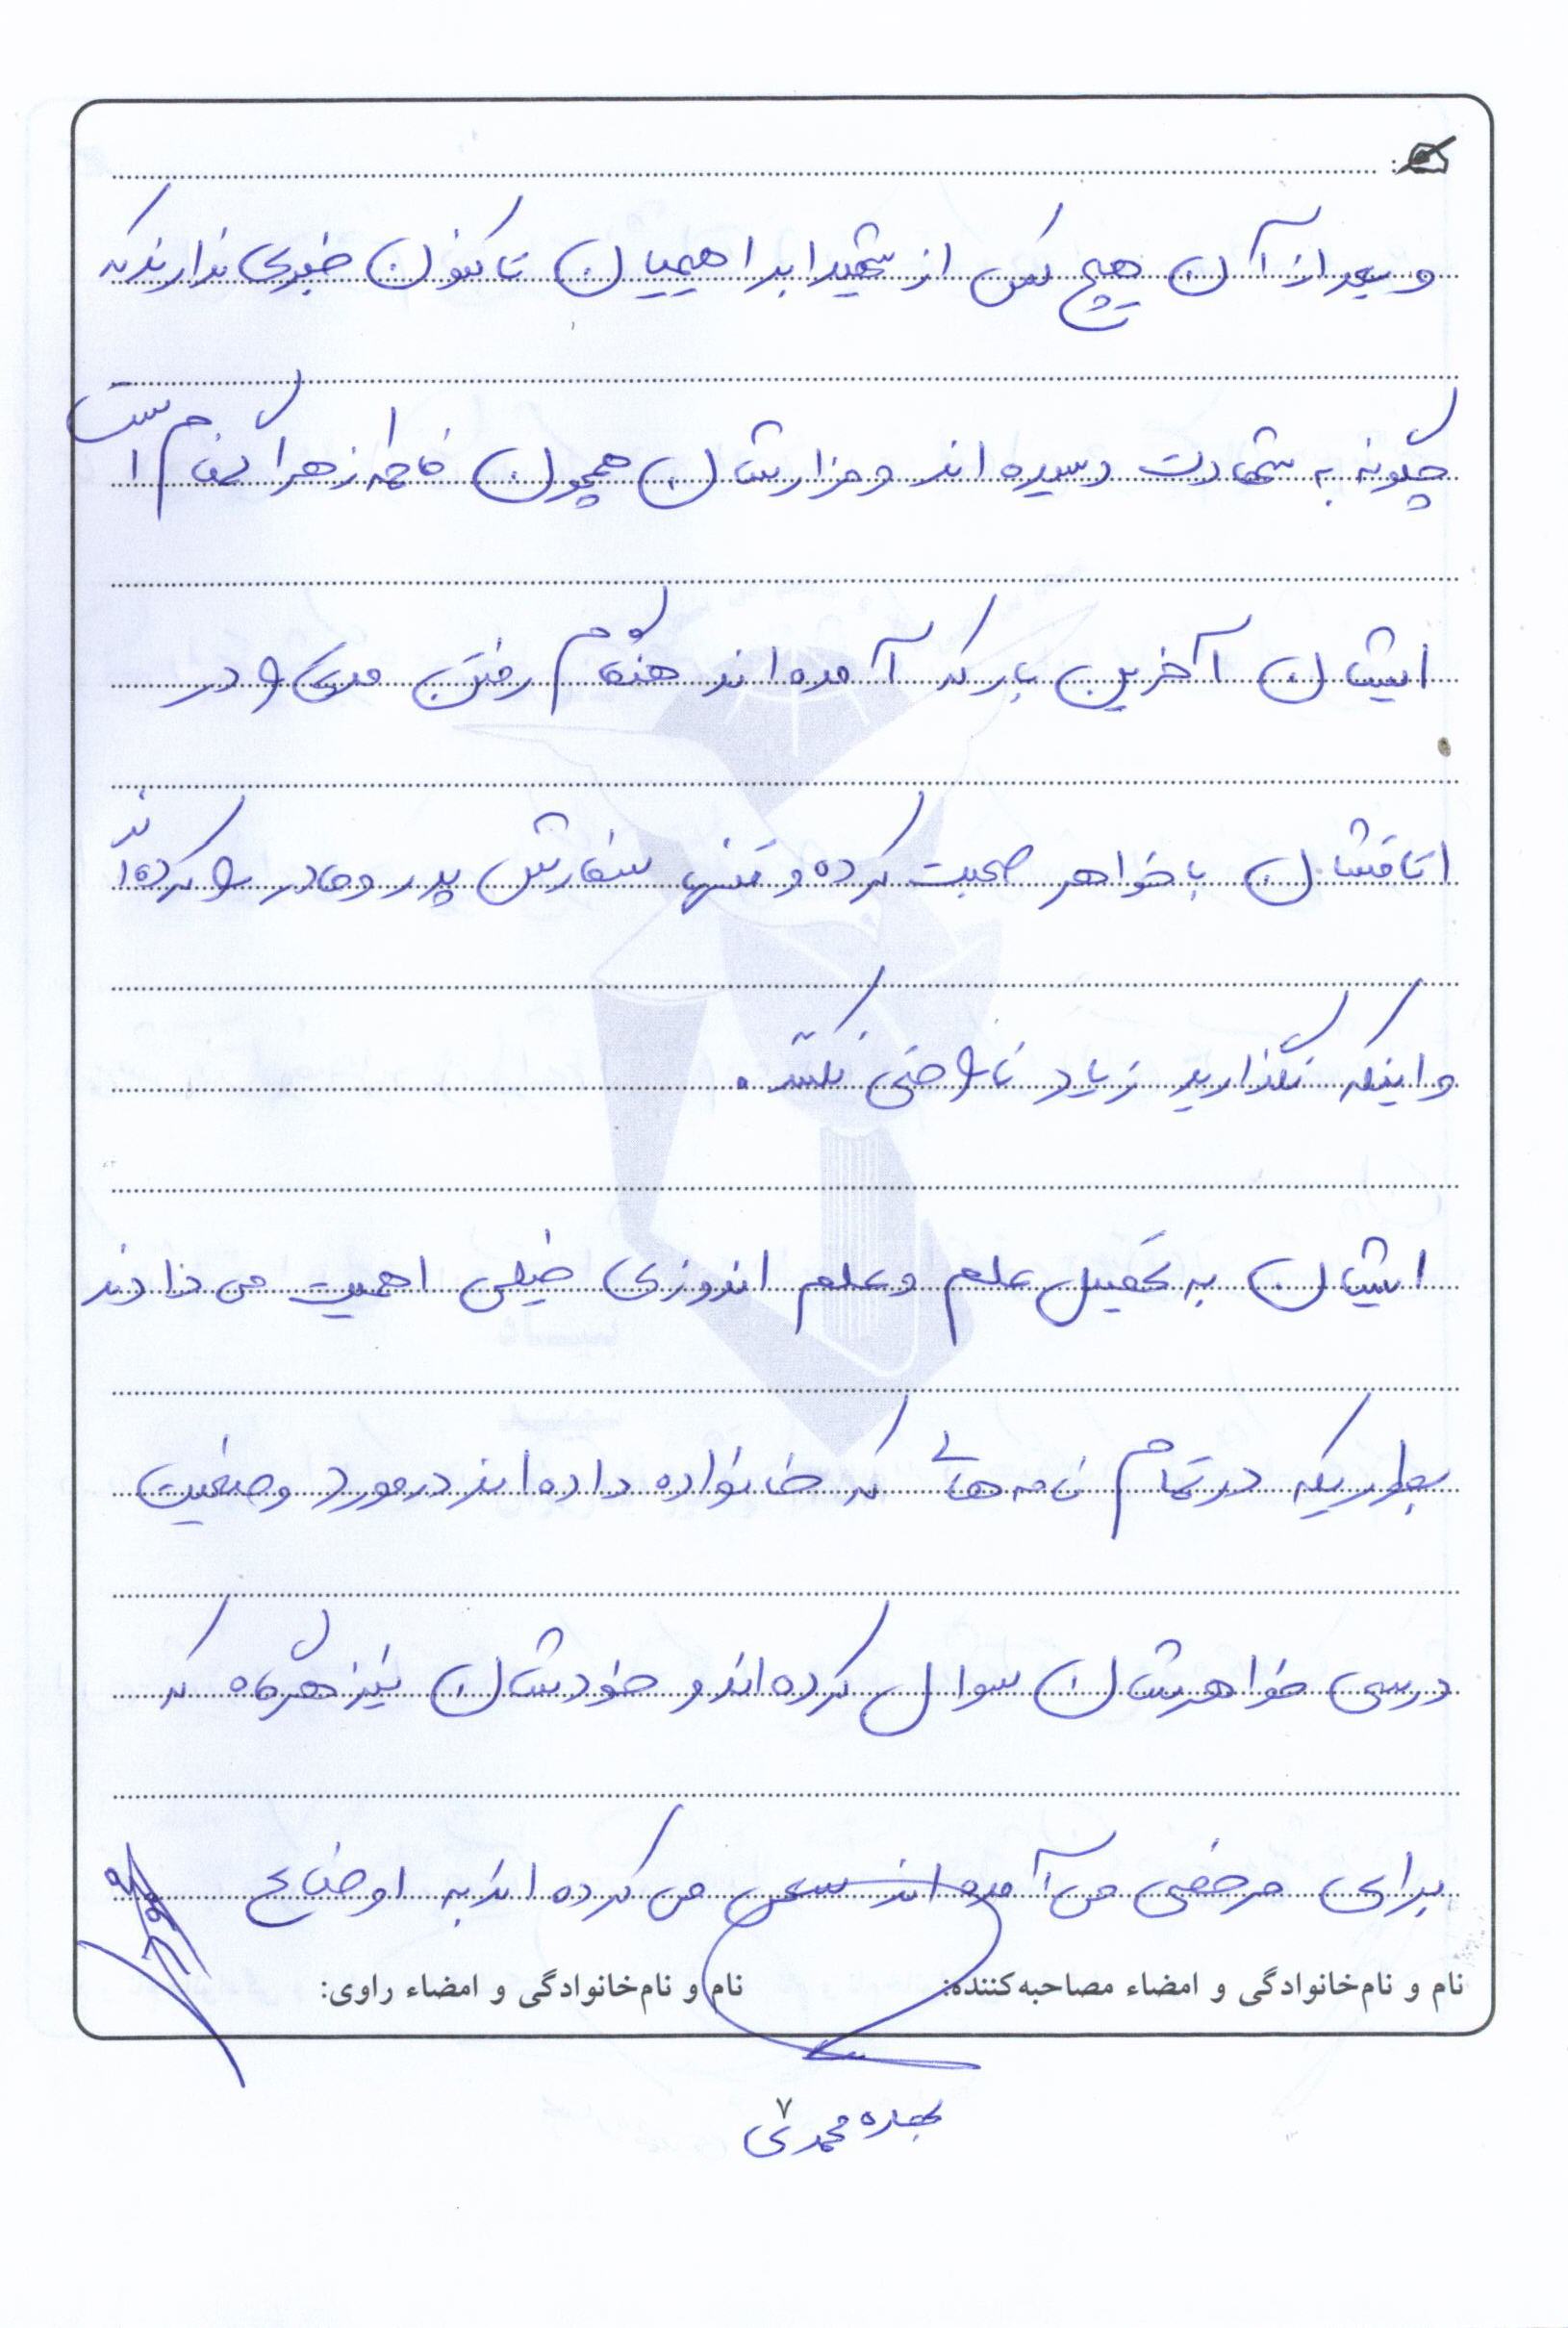 و بعد از آن هیچ کس از شهید ابراهیمیان تا کنون خبری ندارند که
چگونه به شهادت رسیده اند و مزارشان همچون فاطمه زهرا گمنام است
ایشان آخرین بار که آمده اند هنگام رفتن در
اتاقشان با خواهر صحبت کرده و تنها سفارش پدر و مادر را کرده اند
و اینکه نگذارید زیاد ناراحتی بکشند.
ایشان به تحصیل علم و علم اندوزی خیلی اهمیت می دادند
بطوریکه در تمام نامه هائی که خانواده داده اند در مورد وضعیت
درسی خواهرشان سوال کرده اند و خودشان نیز هرگاه که
برای مرخصی می آمده اند سعی می کرده اند به اوضاع
نام و نام‌خانوادگی و امضاء مصاحبه‌کننده: نام و نام‌خانوادگی و امضاء راوی:
۷
محمدی